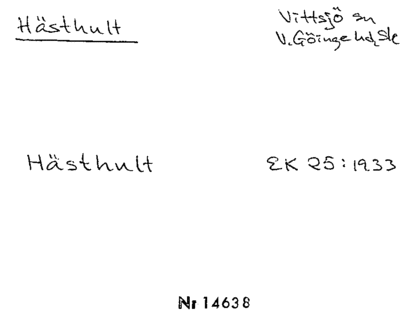 Hästhult
Vittsjö sn
V. Göinge hd, Sk
Hästhult
EK 25:1933
Nr 14638